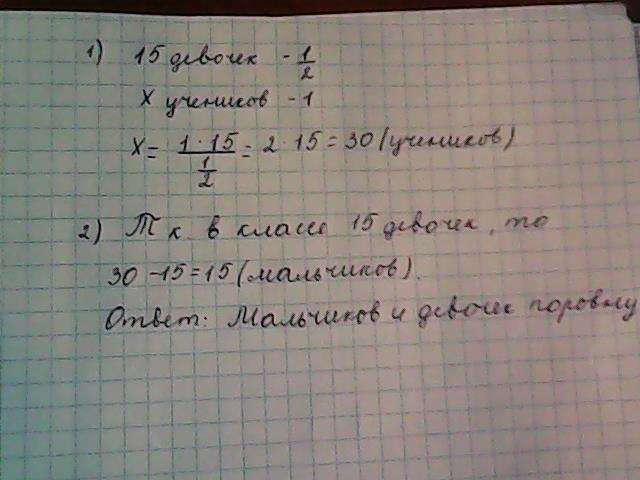 1) 15 девочек - 1/2
X учеников - 1
X = 1·15 / 1/2 = 2·15 = 30 (учеников)
2) Т к в классе 15 девочек, то
30 - 15 = 15 (мальчиков).
Ответ: Мальчиков и девочек поровну